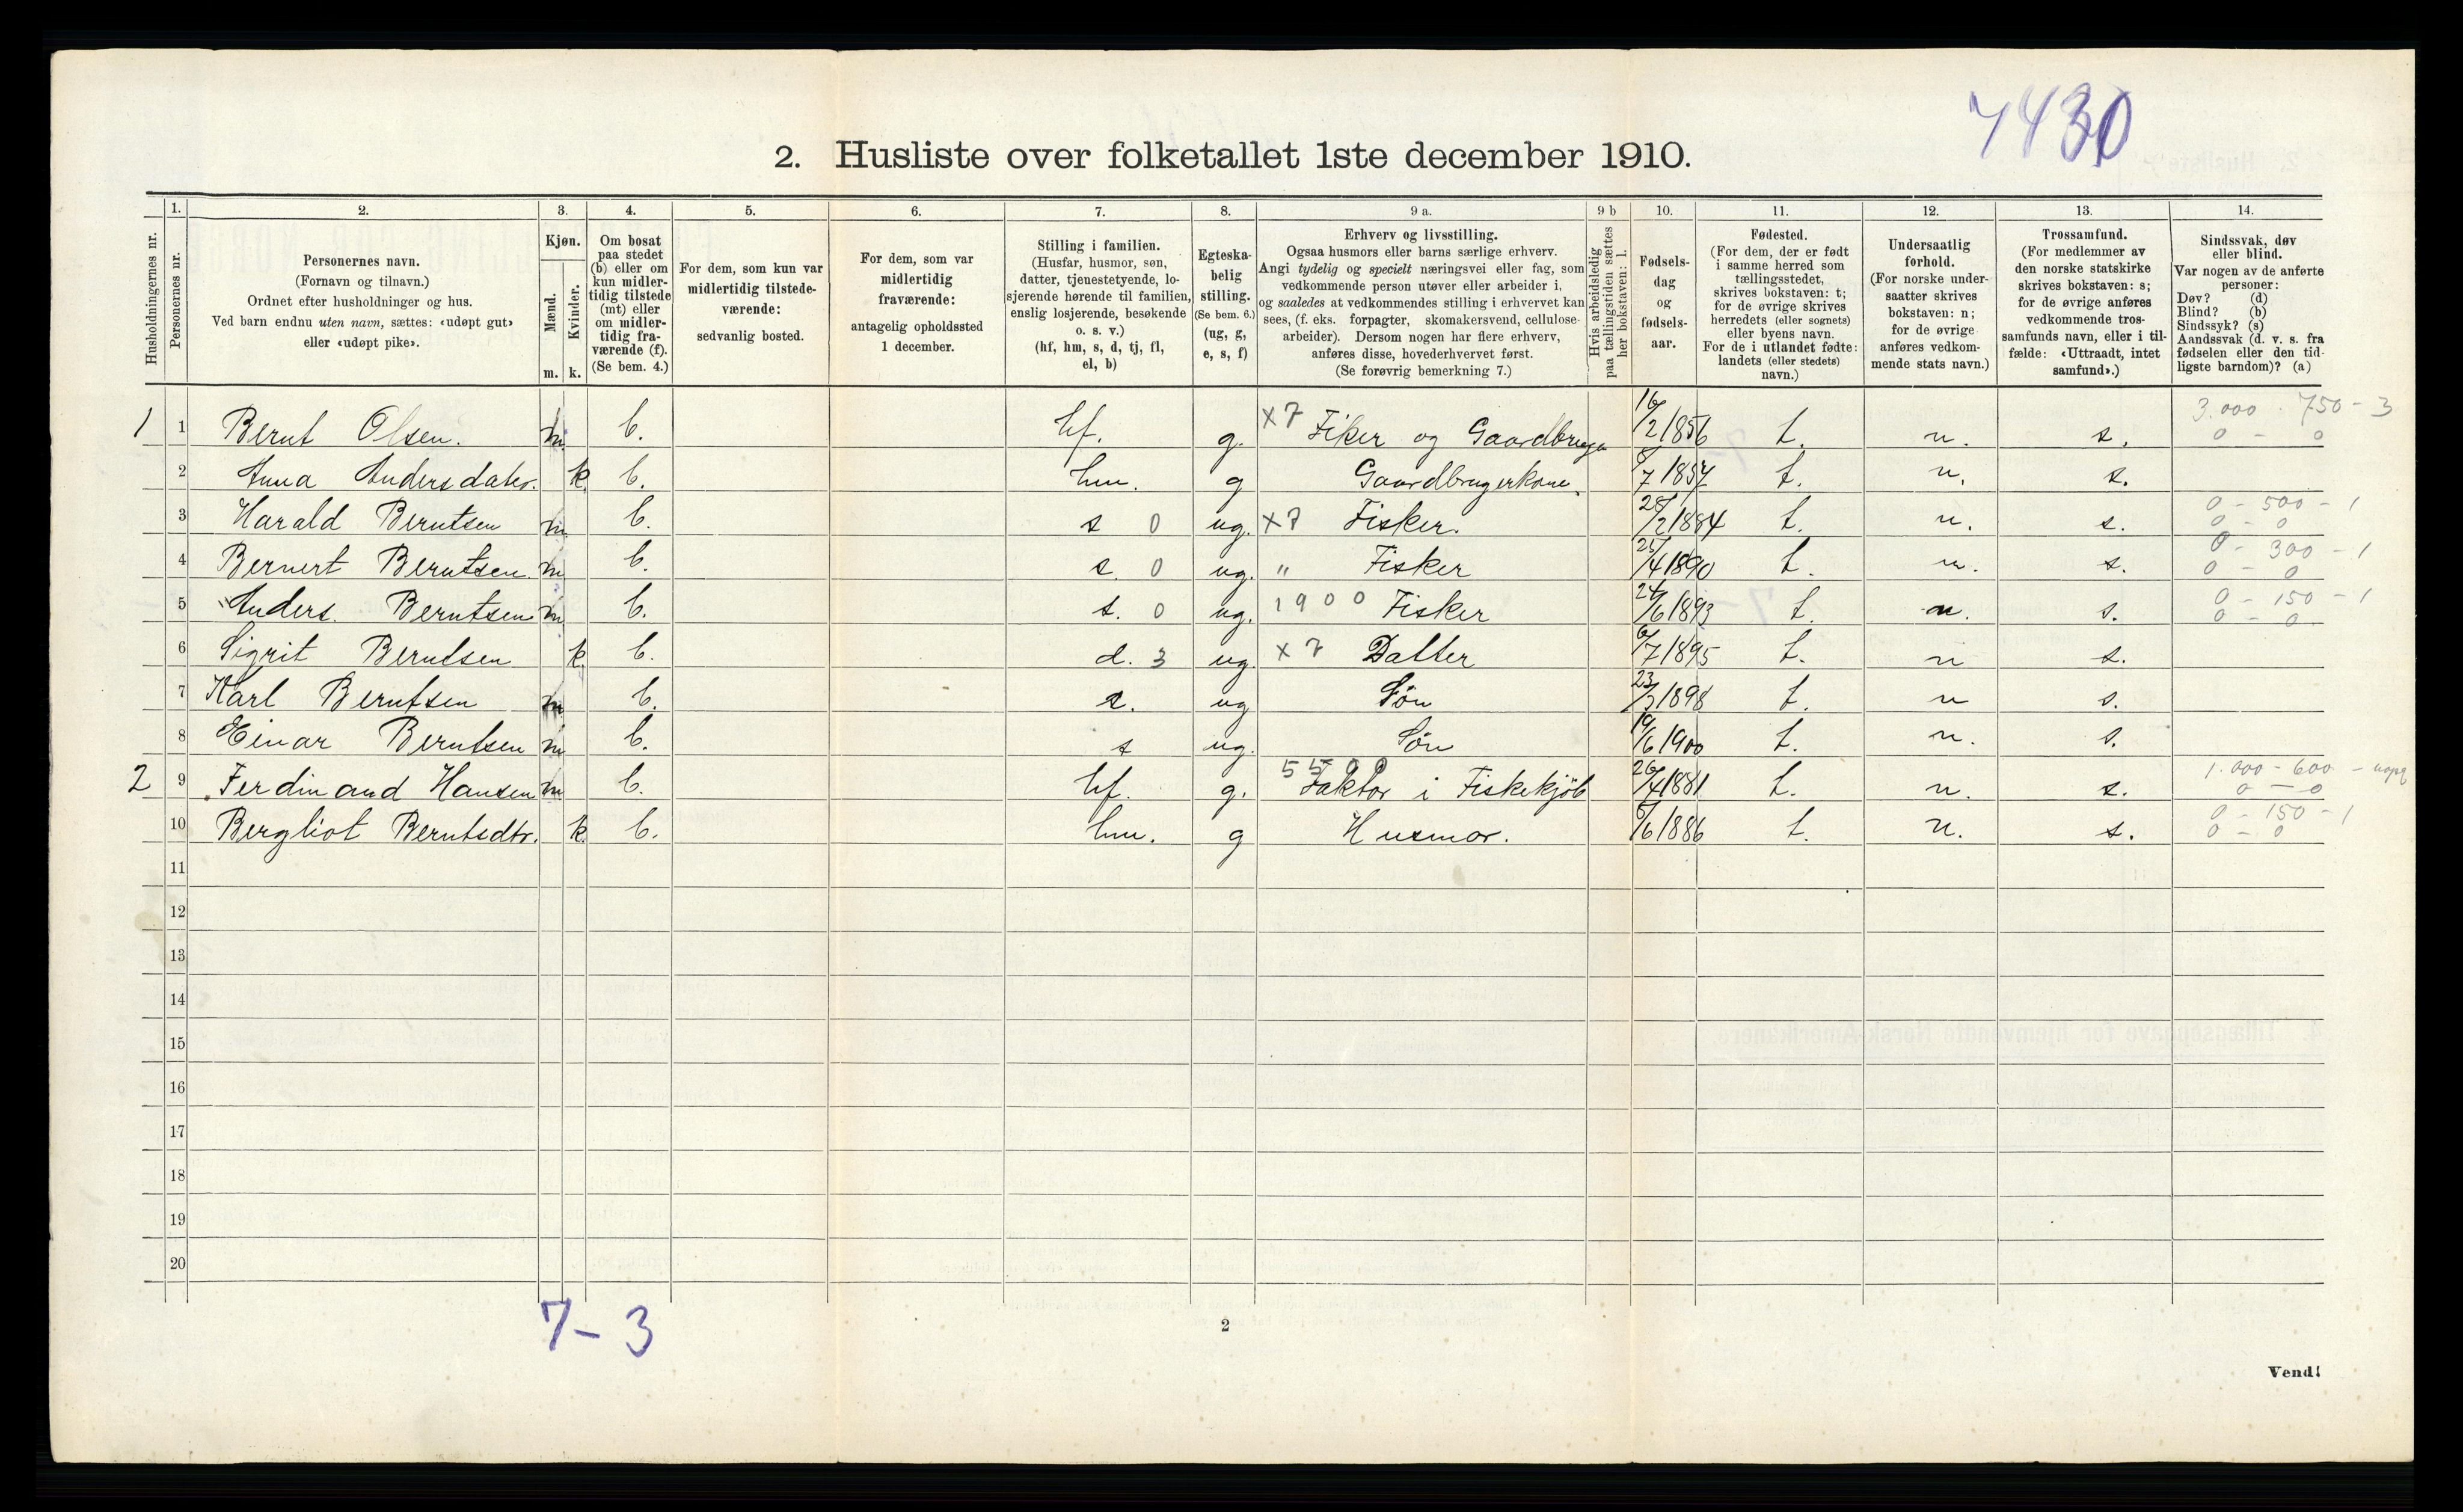 7430
2. Husliste over folketallet 1ste december 1910.
Husholdningernes nr.
1. Personernes nr.
2. Personernes navn. (Fornavn og tilnavn.) Ordnet efter husholdninger og hus. Ved barn endnu uten navn, sættes: «udøpt gut» eller «udøpt pike».
3. Kjøn. Mænd. m. Kvinder. k.
4. Om bosat paa stedet (b) eller om kun midlertidig tilstede (mt) eller om midlertidig fraværende (f). (Se bem. 4.)
5. For dem, som kun var midlertidig tilstedeværende: sedvanlig bosted.
6. For dem, som var midlertidig fraværende: antagelig opholdssted 1 december.
7. Stilling i familien. (Husfar, husmor, søn, datter, tjenestetyende, losjerende hørende til familien, enslig losjerende, besøkende o. s. v.) (hf, hm, s, d, tj, fl, el, b)
8. Egteskabelig stilling. (Se bem. 6.) (ug, g, e, s, f)
9 a. Erhverv og livsstilling. Ogsaa husmors eller barns særlige erhverv. Angi tydelig og specielt næringsvei eller fag, som vedkommende person utøver eller arbeider i, og saaledes at vedkommendes stilling i erhvervet kan sees, (f. eks. forpagter, skomakersvend, cellulosearbeider). Dersom nogen har flere erhverv, anføres disse, hovederhvervet først. (Se forøvrig bemerkning 7.)
9 b Hvis arbeidsledig paa tællingstiden sættes her bokstaven: l.
10. Fødselsdag og fødselsaar.
11. Fødested. (For dem, der er født i samme herred som tællingsstedet, skrives bokstaven: t; for de øvrige skrives herredets (eller sognets) eller byens navn. For de i utlandet fødte: landets (eller stedets) navn.)
12. Undersaatlig forhold. (For norske undersaatter skrives bokstaven: n; for de øvrige anføres vedkommende stats navn.)
13. Trossamfund. (For medlemmer av den norske statskirke skrives bokstaven: s; for de øvrige anføres vedkommende trossamfunds navn, eller i tilfælde: «Uttraadt, intet samfund».)
14. Sindssvak, døv eller blind. Var nogen av de anførte personer: Døv? (d) Blind? (b) Sindssyk? (s) Aandssvak (d. v. s. fra fødselen eller den tidligste barndom)? (a)
1 1 Bernt Olsen. m. b. hf. g. x7 Fiker og Gaardbruger 16/2 1856 t. n. s. 3.000 - 750 - 3 0 - 0
2 Anna Andersdatr. k. b. hm. g Gaardbrugerkone. 8/7 1857 t. n. s.
3 Harald Berntsen m. b. s 0 ug. x7 Fisker. 28/2 1884 t. n. s. 0 - 500 - 1 0 - 0
4 Bernert Berntsen. m b. s. 0 ug. " Fisker 25/4 1890 t. n. s. 0 - 300 - 1 0 - 0
5 Anders. Berntsen m b. s. 0 ug. 1900 Fisker 24/6 1893 t. n. s. 0 - 150 - 1 0 - 0
6 Sigrit Berntsen k. b. d. 3 ug. x7 Datter 6/7 1895 t. n s.
7 Karl Berntsen m. b. s. ug Søn 23/3 1898 t. n s.
8 Einar Berntsen m b. s ug. Søn 19/6 1900 t. n. s.
2 9 Ferdinand Hansen m. b. hf. g. 5500 Faktor i Fiskekjöb 26/4 1881 t. n. s. 1.000 - 600 - 0 - 0
10 Bergliot Berntsdtr. k. b. hm. g Husmor. 6/6 1886 t. n. s. 0 - 150 - 1 0 - 0
11
12
13
14
15
16
17
18
19
20
7 - 3
2
Vend!